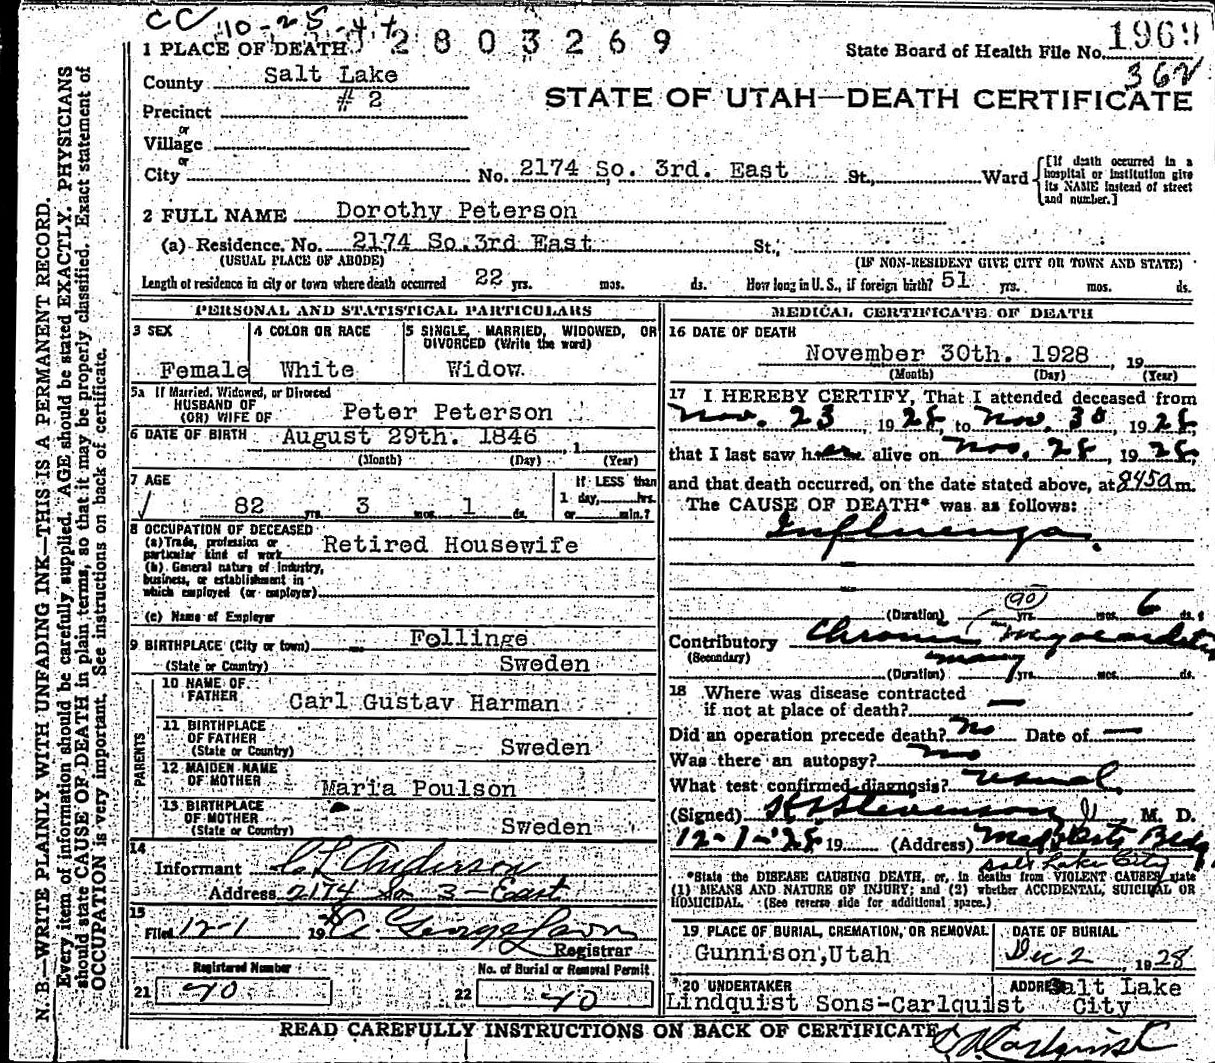 CC 10-25-44
2803269
State Board of Health File No. 1969
362
STATE OF UTAH—DEATH CERTIFICATE
1 PLACE OF DEATH
County Salt Lake
Precinct # 2
or
Village
or
City No. 2174 So. 3rd. East St., Ward [If death occurred in a hospital or institution give its NAME instead of street and number.]
2 FULL NAME Dorothy Peterson
(a) Residence. No. 2174 So.3rd East St.,
(USUAL PLACE OF ABODE) (IF NON-RESIDENT GIVE CITY OR TOWN AND STATE)
Length of residence in city or town where death occurred 22 yrs. mos. ds. How long in U. S., if foreign birth? 51 yrs. mos. ds.
PERSONAL AND STATISTICAL PARTICULARS
3 SEX
Female
4 COLOR OR RACE
White
5 SINGLE, MARRIED, WIDOWED, OR
DIVORCED (Write the word)
Widow.
5a If Married, Widowed, or Divorced
HUSBAND OF
(OR) WIFE OF Peter Peterson
6 DATE OF BIRTH August 29th. 1846 , 1
(Month) (Day) (Year)
7 AGE
82 yrs. 3 mos. 1 ds.
If LESS than
1 day, hrs.
or min.?
8 OCCUPATION OF DECEASED
(a) Trade, profession or
particular kind of work Retired Housewife
(b) General nature of industry,
business, or establishment in
which employed (or employer)
(c) Name of Employer
9 BIRTHPLACE (City or town) Follinge
(State or Country) Sweden
PARENTS
10 NAME OF
FATHER Carl Gustav Harman
11 BIRTHPLACE
OF FATHER
(State or Country) Sweden
12 MAIDEN NAME
OF MOTHER Maria Poulson
13 BIRTHPLACE
OF MOTHER
(State or Country) Sweden
14
Informant C L Anderson
Address 2174 So 3-East
15
Filed 12-1 19 George
Registrar
Registered Number
21 70
No. of Burial or Removal Permit
22 70
MEDICAL CERTIFICATE OF DEATH
16 DATE OF DEATH
November 30th. 1928 , 19
(Month) (Day) (Year)
17 I HEREBY CERTIFY, That I attended deceased from
Nov. 23, 1928, to Nov. 30, 1928,
that I last saw her alive on Nov. 28, 1928,
and that death occurred, on the date stated above, at 845a m.
The CAUSE OF DEATH* was as follows:
Influenza.
90
(Duration) yrs. mos. 6 ds.
Contributory Chronic Myocarditis
(Secondary)
(Duration) many yrs. mos. ds.
18 Where was disease contracted
if not at place of death? —
Did an operation precede death? No Date of —
Was there an autopsy? no
What test confirmed diagnosis? usual.
(Signed) Stevenson M. D.
12-1-'28 19 (Address) Med Arts Bldg
Salt Lake City
*State the DISEASE CAUSING DEATH, or, in deaths from VIOLENT CAUSES, state
(1) MEANS AND NATURE OF INJURY; and (2) whether ACCIDENTAL, SUICIDAL OR
HOMICIDAL. (See reverse side for additional space.)
19 PLACE OF BURIAL, CREMATION, OR REMOVAL
Gunnison,Utah
DATE OF BURIAL
Dec 2, 1928
20 UNDERTAKER
Lindquist Sons-Carlquist
ADDRESS Salt Lake
City
READ CAREFULLY INSTRUCTIONS ON BACK OF CERTIFICATE
C Carlquist
N. B.—WRITE PLAINLY WITH UNFADING INK—THIS IS A PERMANENT RECORD.
Every item of information should be carefully supplied. AGE should be stated EXACTLY. PHYSICIANS
should state CAUSE OF DEATH in plain terms, so that it may be properly classified. Exact statement of
OCCUPATION is very important. See instructions on back of certificate.